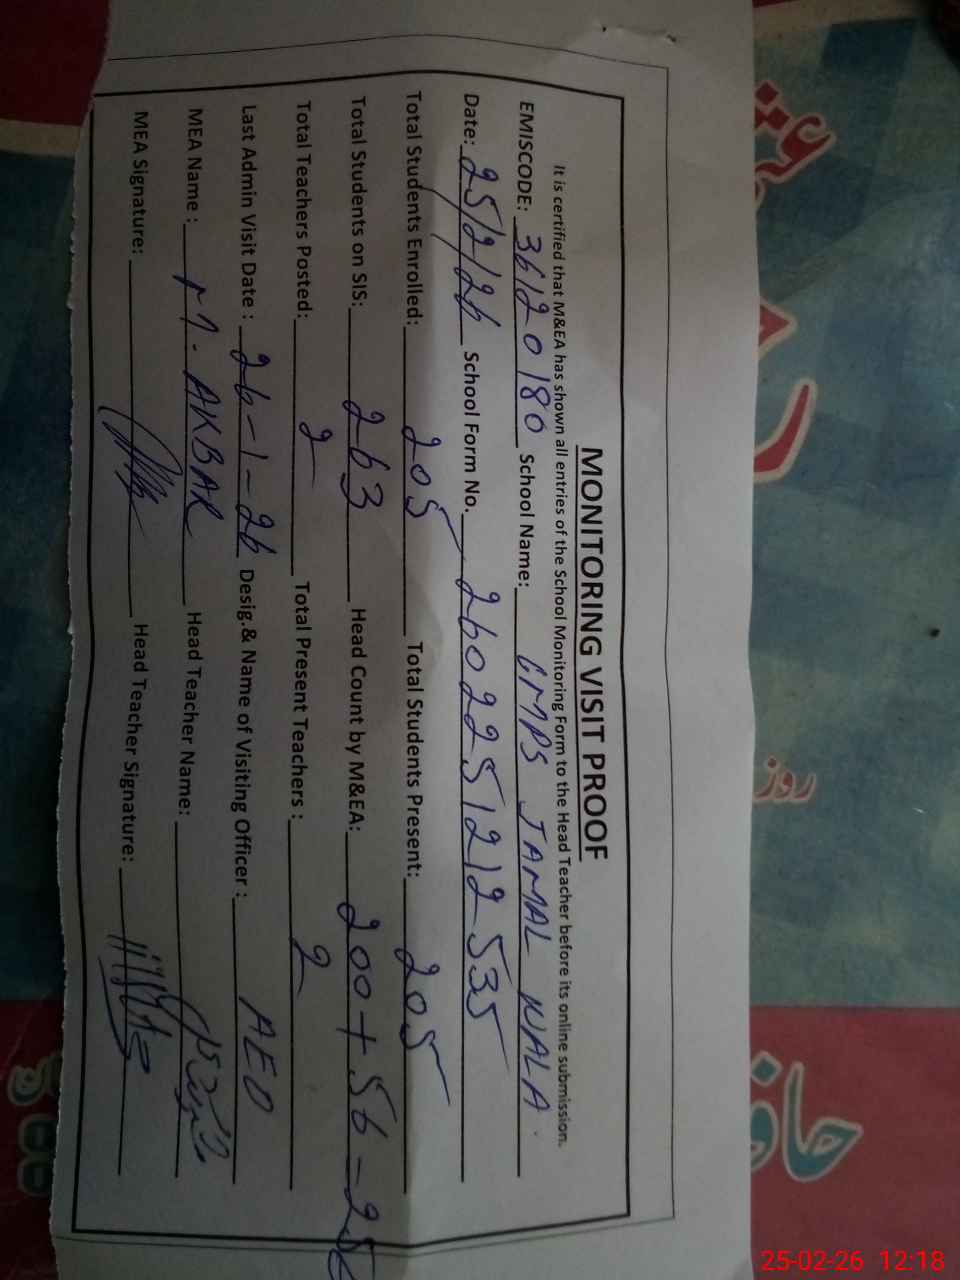 MONITORING VISIT PROOF
It is certified that M&EA has shown all entries of the School Monitoring Form to the Head Teacher before its online submission.
EMISCODE: 36120180 School Name: GMPS JAMAL WALA.
Date: 25/2/26 School Form No. 2602251212535
Total Students Enrolled: 205 Total Students Present: 205
Total Students on SIS: 263 Head Count by M&EA: 200+56-256
Total Teachers Posted: 2 Total Present Teachers : 2
Last Admin Visit Date : 26-1-26 Desig.& Name of Visiting Officer : AEO
MEA Name : M. AKBAR Head Teacher Name:
MEA Signature: Head Teacher Signature:
روز
حاف
25-02-26 12:18